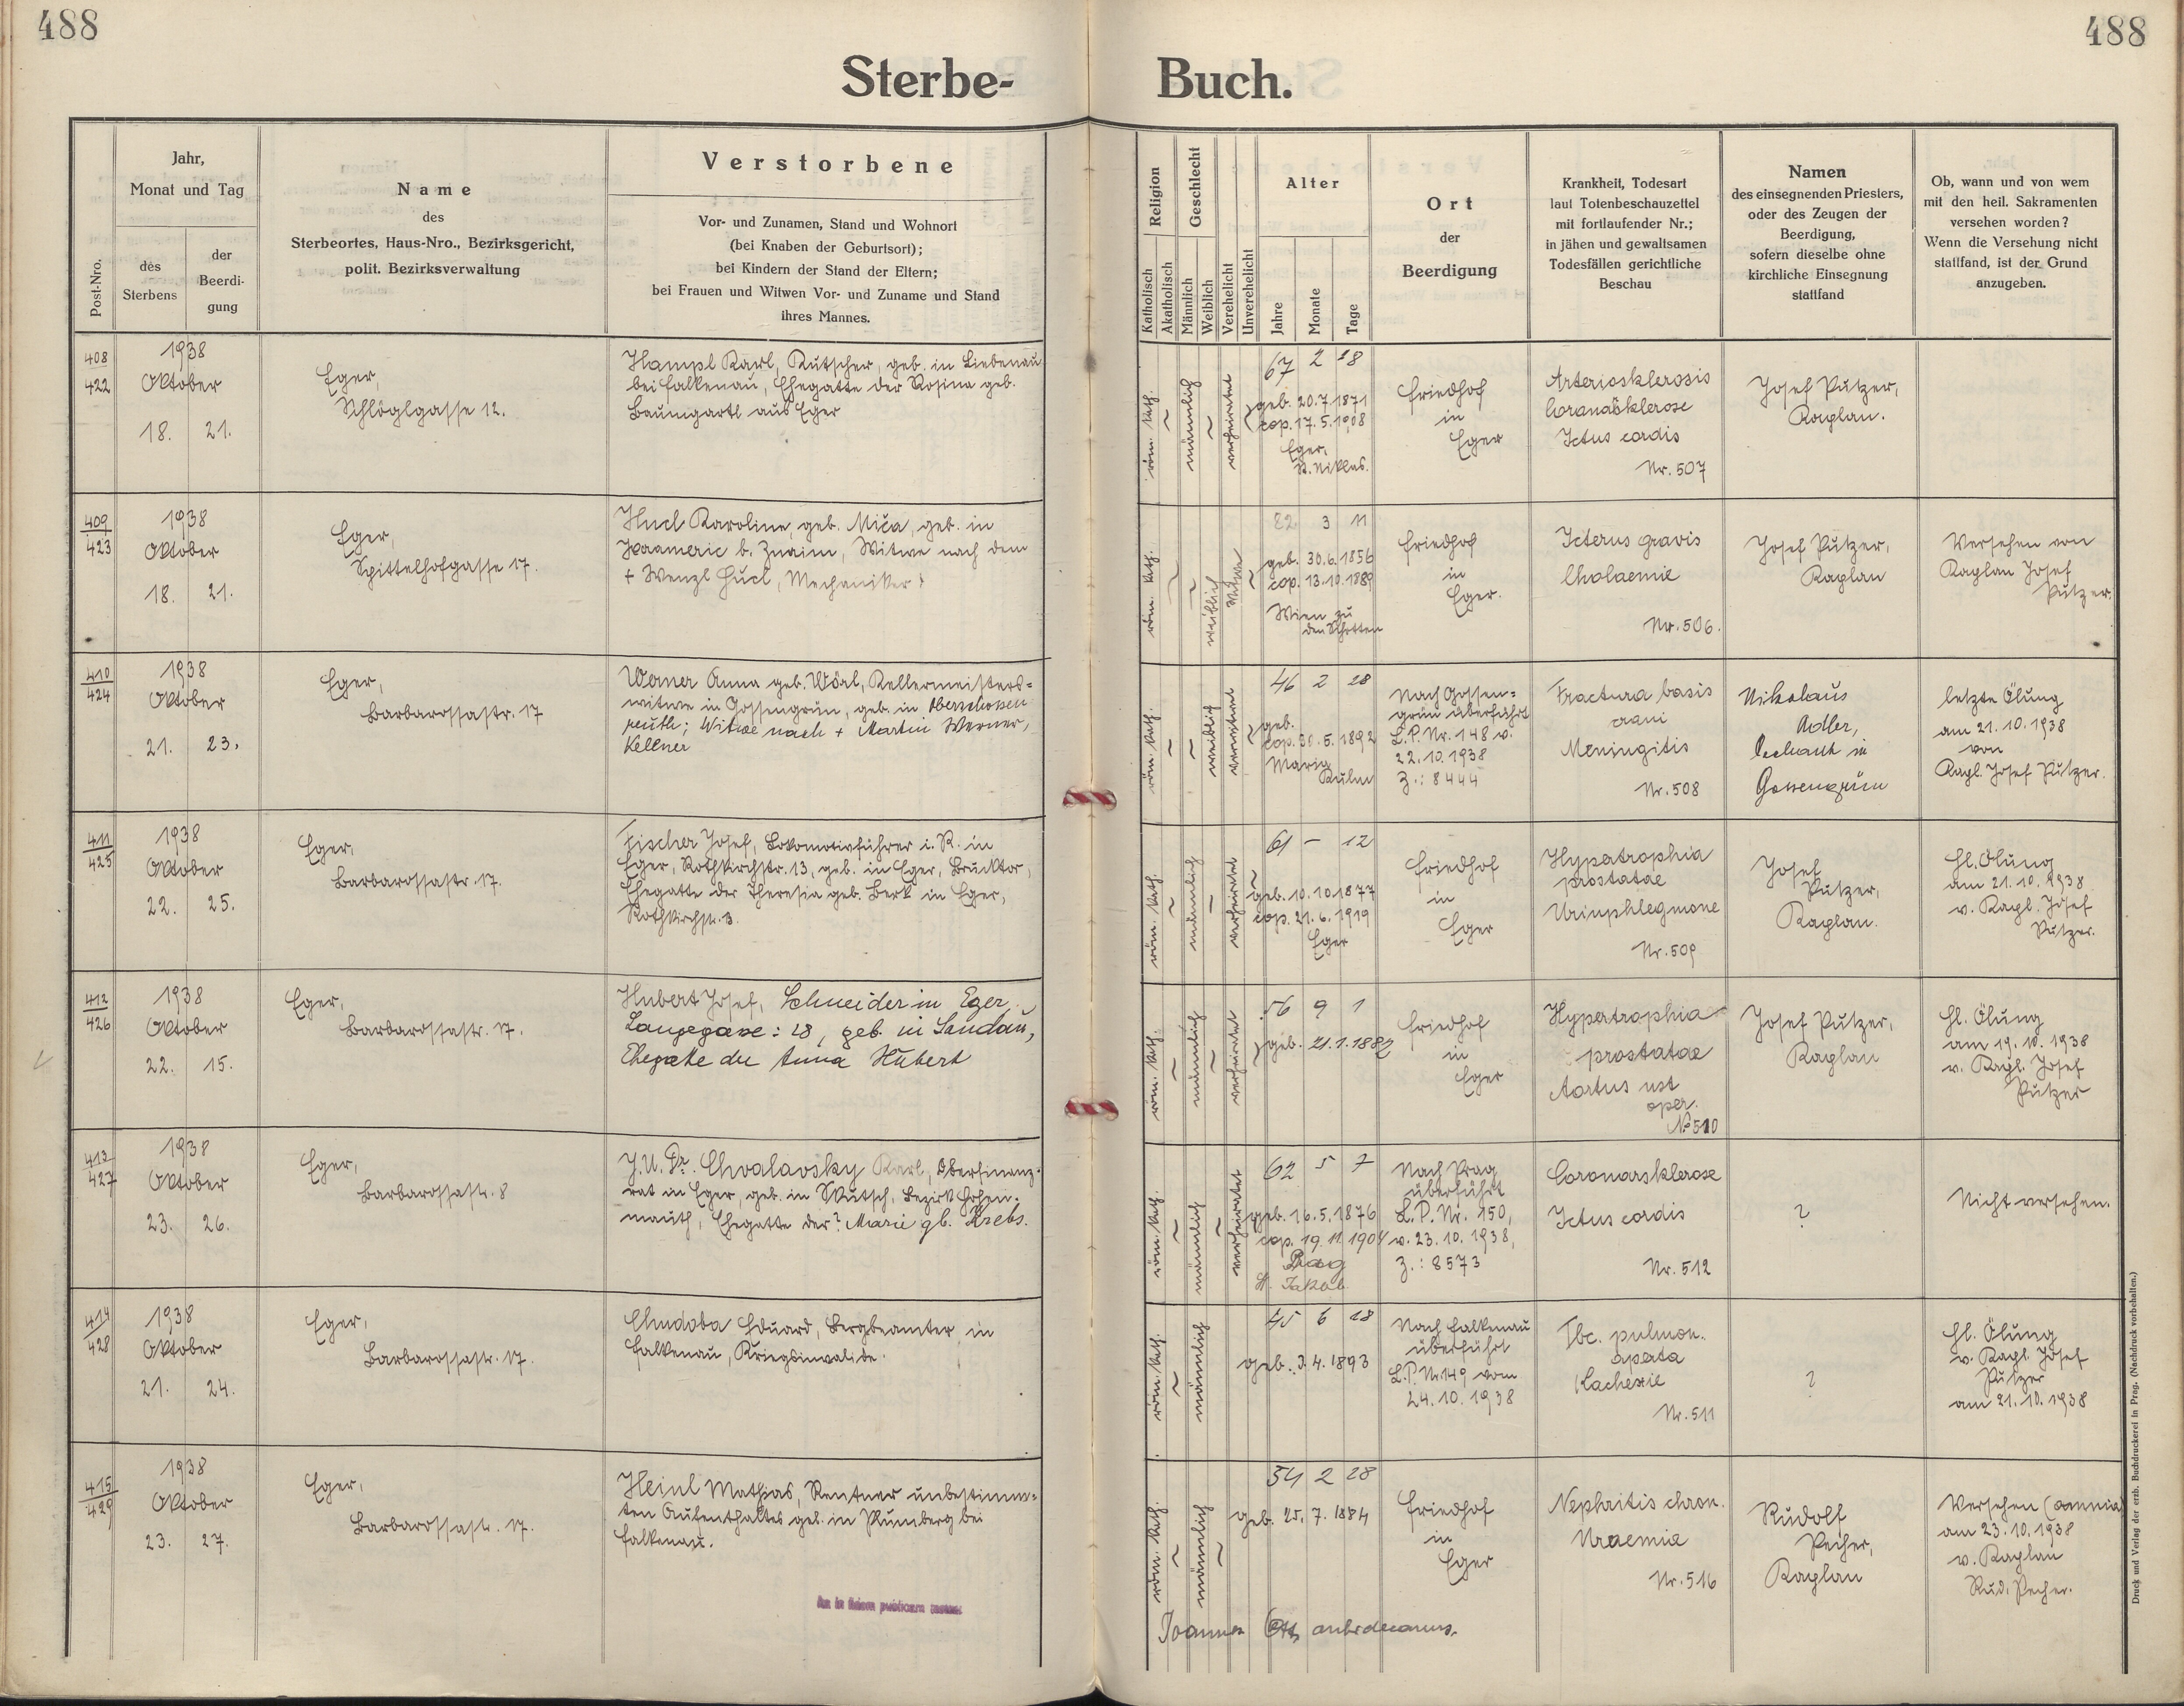 488
488
Sterbe-
Buch.
Post-Nro.
Jahr,
Monat und Tag
des
Sterbens
der
Beerdi-
gung
Name
des
Sterbeortes, Haus-Nro., Bezirksgericht,
polit. Bezirksverwaltung
Verstorbene
Vor- und Zunamen, Stand und Wohnort
(bei Knaben der Geburtsort);
bei Kindern der Stand der Eltern;
bei Frauen und Witwen Vor- und Zuname und Stand
ihres Mannes.
Religion
Katholisch
Akatholisch
Geschlecht
Männlich
Weiblich
Verehelicht
Unverehelicht
Alter
Jahre
Monate
Tage
Ort
der
Beerdigung
Krankheit, Todesart
laut Totenbeschauzettel
mit fortlaufender Nr.;
in jähen und gewaltsamen
Todesfällen gerichtliche
Beschau
Namen
des einsegnenden Priesters,
oder des Zeugen der
Beerdigung,
sofern dieselbe ohne
kirchliche Einsegnung
stattfand
Ob, wann und von wem
mit den heil. Sakramenten
versehen worden?
Wenn die Versehung nicht
stattfand, ist der Grund
anzugeben.
408
422
1938
Oktober
18. 21.
Eger,
Schlöglgasse 12.
Hampl Karl, Kutscher, geb. in Liebenau
bei Falkenau, Ehegatte der Rosina geb.
Baumgartl aus Eger
röm. kath.
männlich
verheiratet
67 2 28
geb. 20.7.1871
cop. 17.5.1908
Eger,
St. Niklas.
Friedhof
in
Eger
Arteriosklerosis
Coronarsklerose
Ictus cordis
Nr. 507
Josef Putzer,
Kaplan.
409
423
1938
Oktober
18. 21.
Eger,
Spittelhofgasse 17.
Hucl Karoline, geb. Miča, geb. in
b. Znaim, Witwe nach dem
+ Wenzl Hucl, Mechaniker
röm. kath.
weiblich
Witwe
82 3 11
geb. 30.6.1856
cop. 13.10.1889
Wien zu
den Schotten
Friedhof
in
Eger.
Icterus gravis
Cholaemie
Nr. 506.
Josef Putzer,
Kaplan
Versehen von
Kaplan Josef
Putzer.
410
424
1938
Oktober
21. 23.
Eger,
Barbarossastr. 17
Werner Anna geb. Wörl, Kellermeisters-
witwe in Gossengrün, geb. in Oberschossen
reuth; Witwe nach + Martin Werner,
Kellner
röm. kath.
weiblich
46 2 28
geb.
cop. 30.5.1892
Maria
Kulm
Nach Gossen-
grün überführt
L.P. Nr. 148 v.
22.10.1938
Z.: 8444
Fractura basis
crani
Meningitis
Nr. 508
Nikolaus
Adler,
Dechant in
Gossengrün
letzte Ölung
am 21.10.1938
von
Kapl. Josef Putzer.
411
425
1938
Oktober
22. 25.
Eger,
Barbarossastr. 17.
Fischer Josef, Lokomotivführer i. R. in
Eger, Rothkirchstr. 13, geb. in Eger, Brucktor,
Ehegatte der Theresia geb. Berk in Eger,
Rothkirchstr. 13.
röm. kath.
männlich
verheiratet
61 – 12
geb. 10.10.1877
cop. 21.6.1919
Eger
Friedhof
in
Eger
Hypetrophia
prostatae
Urinphlegmone
Nr. 509
Josef
Putzer,
Kaplan.
hl. Ölung
am 21.10.1938
v. Kapl. Josef
Putzer.
412
426
1938
Oktober
22. 15.
Eger,
Barbarossastr. 17.
Hubert Josef, Schneider in Eger,
Langegasse: 28, geb. in Sandau,
Ehegatte der Anna Hubert
röm. kath.
männlich
verheiratet
56 9 1
geb. 21.1.1882
Friedhof
in
Eger
Hypertrophia
prostatae
oper.
№ 510
Josef Putzer,
Kaplan
hl. Ölung
am 19.10.1938
v. Kapl. Josef
Putzer
413
427
1938
Oktober
23. 26.
Eger,
Barbarossastr. 8
J.U. Dr. Chvalovsky Karl, Oberfinanz-
rat in Eger, geb. in Skutsch, Bezirk Hohen-
mauth, Ehegatte der? Marie gb. Krebs.
röm. kath.
männlich
verheiratet
62 5 7
geb. 16.5.1876
cop. 19.11.1904
Prag
St. Jakob.
Nach Prag
überführt
L.P. Nr. 150,
v. 23.10.1938,
Z.: 8573
Coronarsklerose
Ictus cordis
Nr. 512
?
Nicht versehen.
414
428
1938
Oktober
21. 24.
Eger,
Barbarossastr. 17.
Chudoba Eduard, Bergbeamter in
Falkenau, Kriegsinvalide.
röm. kath.
männlich
45 6 18
geb. 3.4.1893
Nach Falkenau
überführt
L.P. Nr. 149 vom
24.10.1938
Tbc. pulmon.
aperta
Kachexie
Nr. 511
?
hl. Ölung
v. Kapl. Josef
Putzer
am 21.10.1938
415
429
1938
Oktober
23. 27.
Eger,
Barbarossastr. 17.
Heinl Mathias, Rentner unbestimm-
ten Aufenthaltes geb. in Plumberg bei
Falkenau.
röm. kath.
männlich
54 2 28
geb. 25.7.1884
Friedhof
in
Eger
Nephritis chron.
Uraemia
Nr. 516
Rudolf
Pecher,
Kaplan
Versehen (omnia)
am 23.10.1938
v. Kaplan
Rud. Pecher.
Joannes Ott,
Druck und Verlag der erzb. Buchdruckerei in Prag. (Nachdruck vorbehalten.)